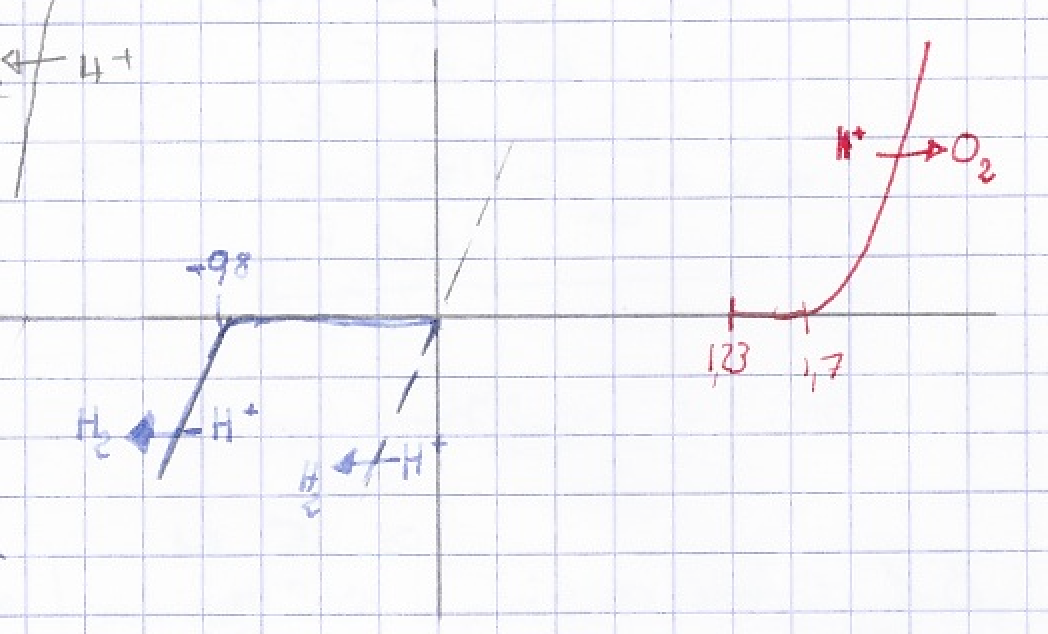 H+
H+ → O2
-0,8
1,23
1,7
H2 ← H+
H2 ← H+